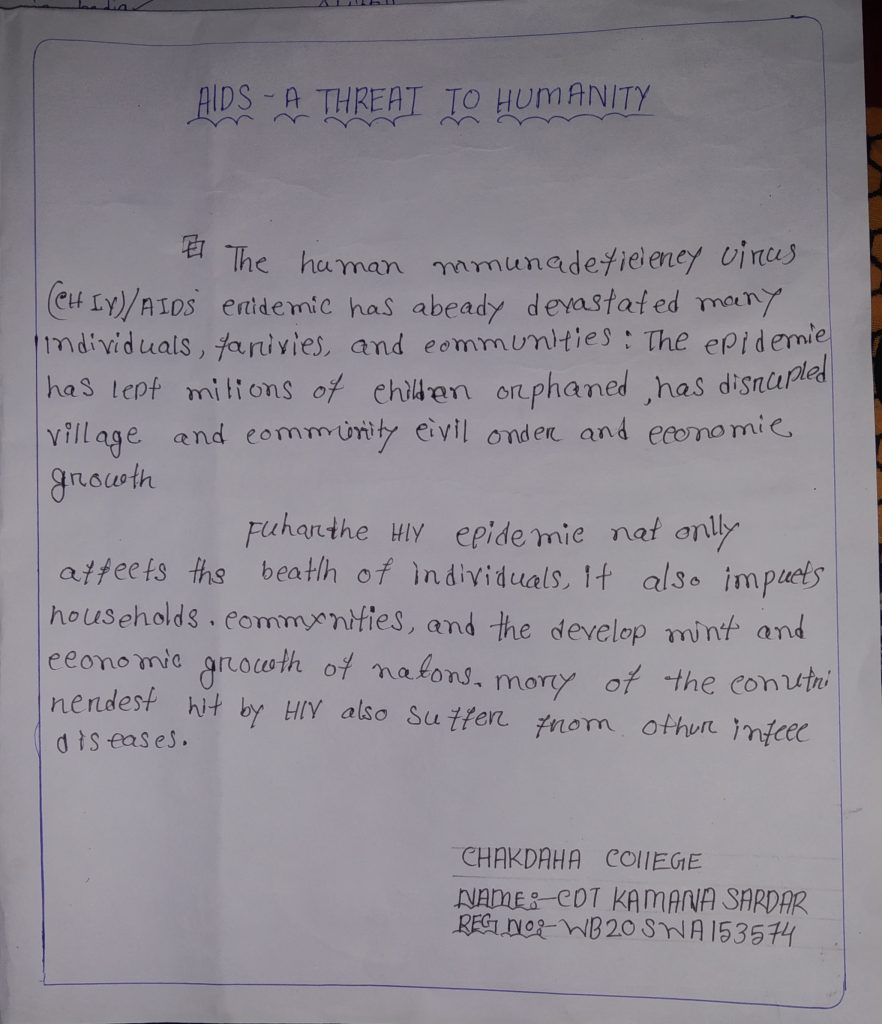 AIDS - A THREAT TO HUMANITY
The human mmunadeficieney virus
(CHIV)/AIDS enidemic has abeady devastated many
individuals, farivies, and communities : The epidemie
has lept milions of children orphaned, has disrupled
village and community eivil onder and eeonomie
growth
Fuharthe HIV epidemie nat onlly
affeets ths beatlh of individuals, it also impuets
households. commxnities, and the develop mint and
eeonomic growth of natons. mory of the conutri
nerdest hit by HIV also suffer from othur infeec
diseases.
CHAKDAHA COllEGE
NAME:- CDT KAMANA SARDAR
REG NO:- WB20SWA153574